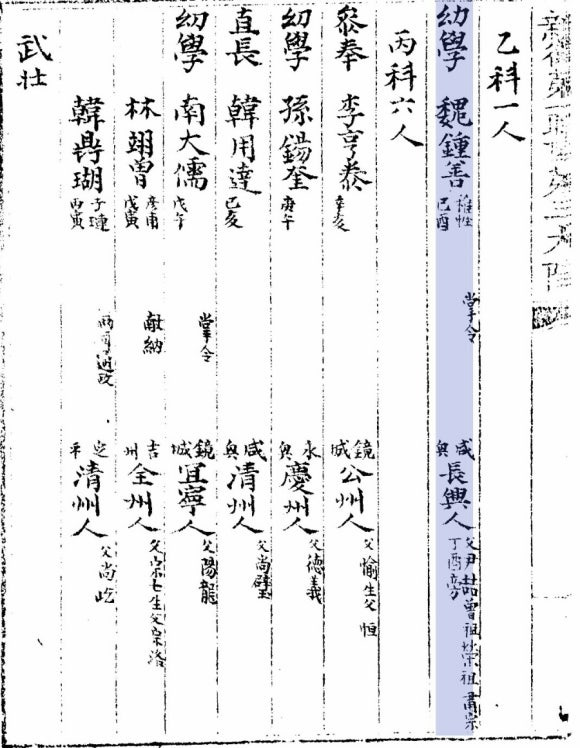 乙科一人
幼學 魏鍾善 稚性 己酉 掌令 咸興 長興人 父尹喆 曾祖 祖 肅宗丁酉旁
丙科六人
參奉 李亨泰 辛亥 鏡城 公州人 父愉 生父恒
幼學 孫錫奎 庚午 永興 慶州人 父德義
直長 韓用達 己亥 咸興 清州人 父尚璧
幼學 南大儒 戊午 掌令 鏡城 宜寧人 父陽龍
林翊曾 彦甫 戊寅 獻納 吉州 全州人 父宗七 生父宗洛
韓鼎瑚 子璉 丙寅 定平 清州人 父尚屹
武壯